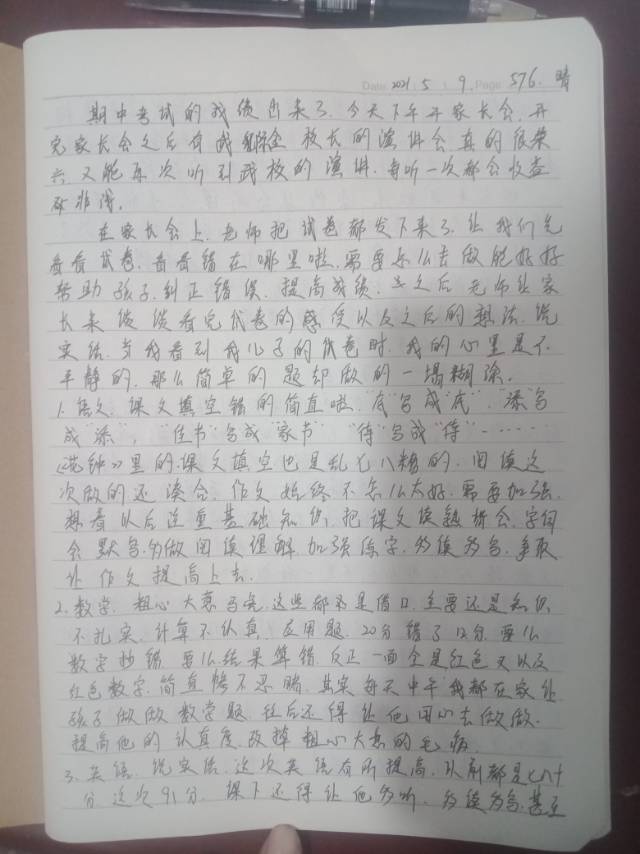 Date. 2021. 5. 9. Page. 576. 晴
期中考试的成绩出来了. 今天下午开家长会. 开
完家长会之后有 校长的演讲会 真的很荣
兴 又能再次听到 校的演讲. 每听一次都会收益
非浅.
在家长会上. 老师把试卷都发下来了. 让我们先
看看试卷. 看看错在哪里啦. 需要怎么去做能好好
帮助孩子. 纠正错误. 提高成绩. 之后老师让家
长来谈谈看完试卷的感受以及之后的想法. 说
实话. 当我看到我儿子的试卷时. 我的心里是不
平静的. 那么简单的题却做的一塌糊涂.
1. 语文. 课文填空错的简直啦. 写成
成"添". "佳节"写成"家节" 写成"待"……
《花钟》里的课文填空也是乱七八糟的. 阅读这
次做的还凑合. 作文始终不怎么太好. 需要加强.
想着以后注重基础知识. 把课文读熟 会. 字词
会默写. 多做阅读理解. 加强练字. 多读多写. 争取
让作文提高上去.
2. 数学. 粗心大意马虎. 这些都不是借口. 主要还是知识
不扎实. 计算不认真. 应用题. 20分错了12分. 要么
数字抄错. 要么结果算错. 反正一面全是红色叉以及
红色数字. 简直惨不忍睹. 其实每天中午我都在家让
孩子做做数学题. 往后还得让他用心去做做.
提高他的认真度. 改掉粗心大意的毛病.
3. 英语. 说实话. 这次英语有所提高. 从前都是六十
分. 这次91分. 课下还得让他多听. 多读多写. 甚至